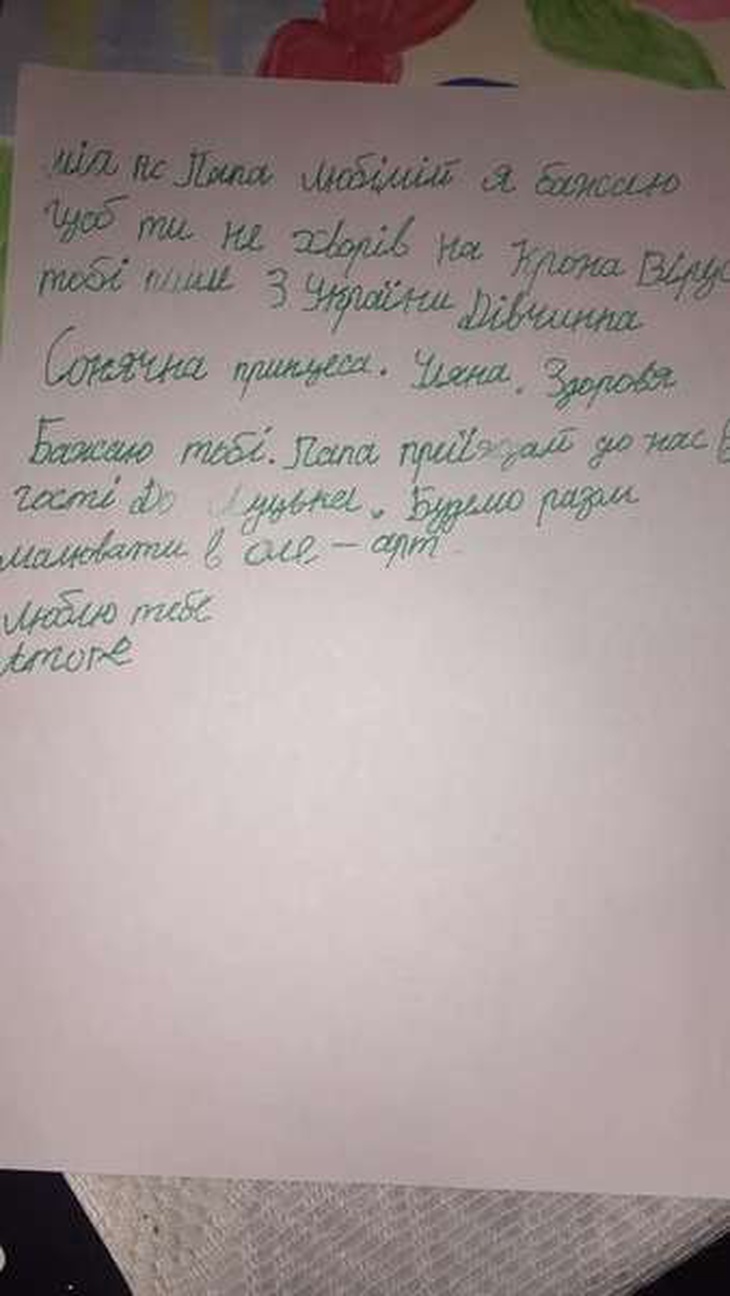 Папа любімій я бажаю
Щоб ти не хворів на Крона Вірус
тобі пише З України Дівчинпа
Сонячна принцеса. Уляна. Здоровя
Бажаю тобі. Папа приїзджай до нас в
гості До Луцька. Будемо разом
малювати в оле - арт
Люблю тебе
Amore